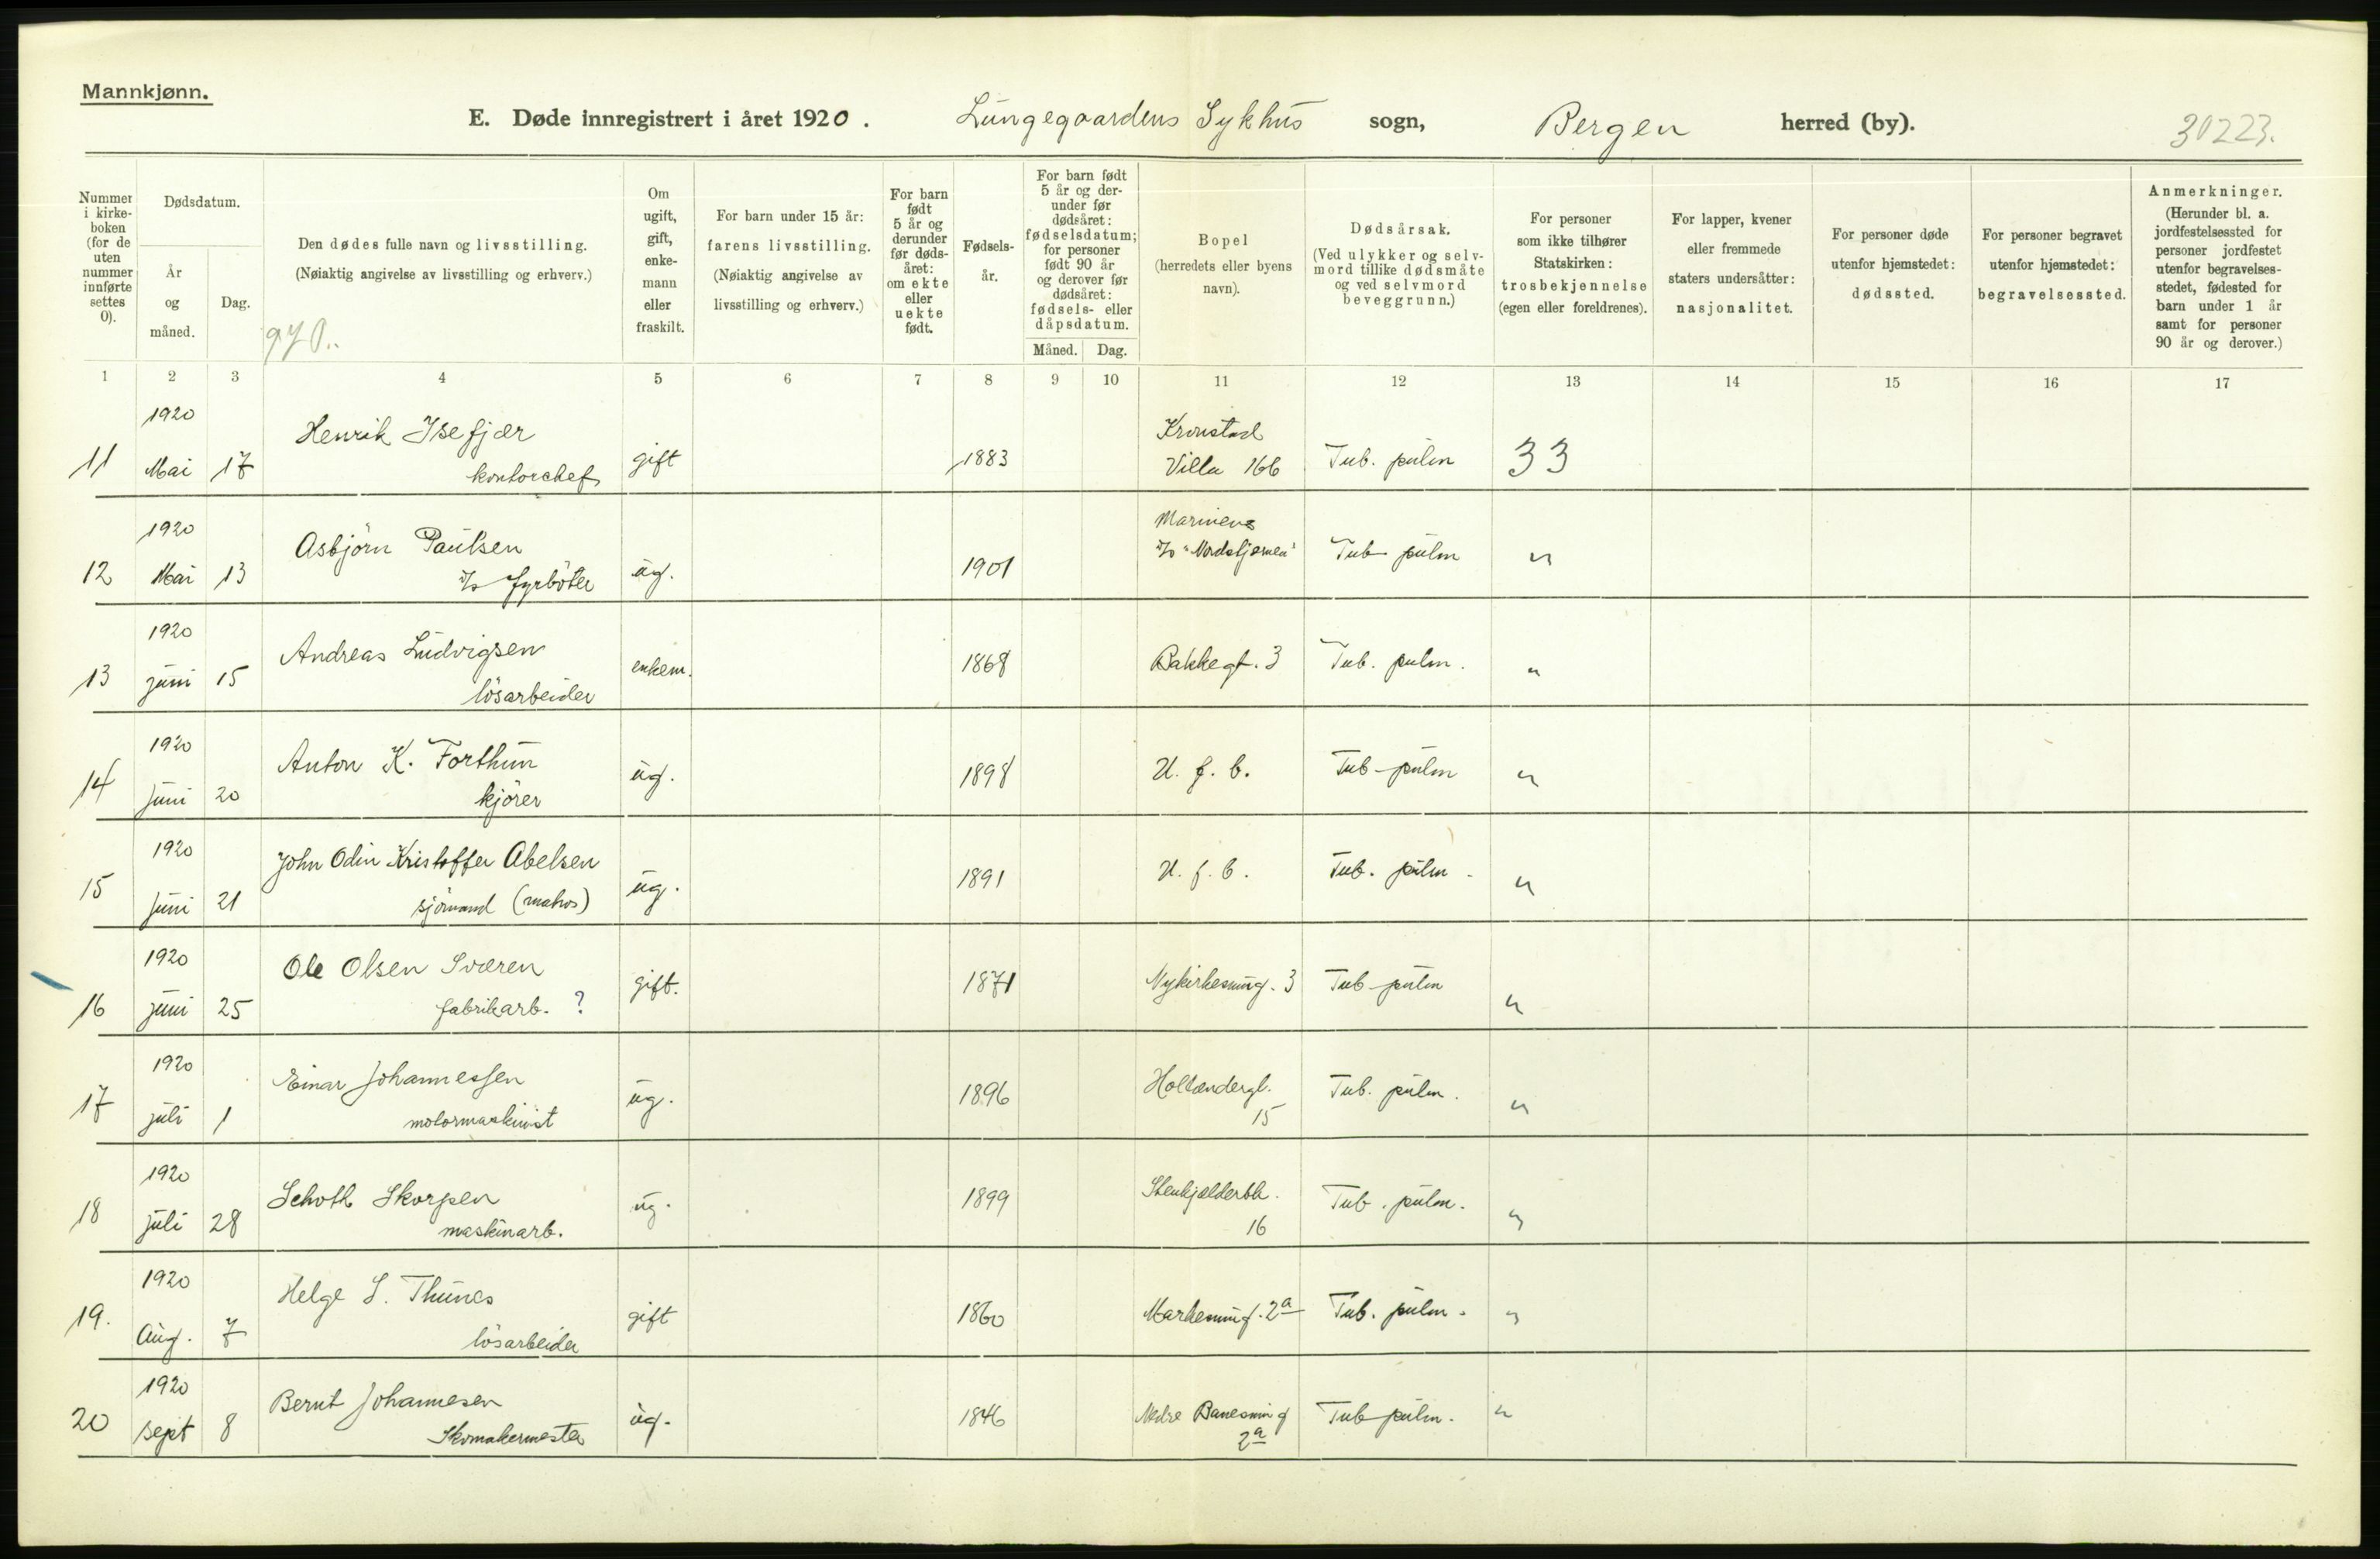 Mannkjønn.
E. Døde innregistrert i året 1920. Lungegaardens Sykhus sogn, Bergen herred (by). 30223.
Nummer i kirkeboken (for de uten nummer innførte settes 0).
Dødsdatum.
År og måned.
Dag.
Den dødes fulle navn og livsstilling.
(Nøiaktig angivelse av livsstilling og erhverv.)
Om ugift, gift, enkemann eller fraskilt.
For barn under 15 år: farens livsstilling.
(Nøiaktig angivelse av livsstilling og erhverv.)
For barn født 5 år og derunder før dødsåret: om ekte eller uekte født.
Fødselsår.
For barn født 5 år og derunder før dødsåret: fødselsdatum; for personer født 90 år og derover før dødsåret: fødsels- eller dåpsdatum.
Måned. Dag.
Bopel
(herredets eller byens navn).
Dødsårsak.
(Ved ulykker og selvmord tillike dødsmåte og ved selvmord beveggrunn.)
For personer som ikke tilhører Statskirken: trosbekjennelse
(egen eller foreldrenes).
For lapper, kvener eller fremmede staters undersåtter: nasjonalitet.
For personer døde utenfor hjemstedet: dødssted.
For personer begravet utenfor hjemstedet: begravelsessted.
Anmerkninger.
(Herunder bl. a. jordfestelsessted for personer jordfestet utenfor begravelsesstedet, fødested for barn under 1 år samt for personer 90 år og derover.)
1 2 3 4 5 6 7 8 9 10 11 12 13 14 15 16 17
1920 Henrik Isefjær Kronstad
11 Mai 17 kontorchef gift 1883 Villa 166 Tub. pulm 33
1920 Asbjörn Paulsen Marinens
12 Mai 13 fyrböter ug. 1901 "Nordstjernen" Tub pulm "
1920 Andreas Ludvigsen
13 juni 15 lösarbeider enkem. 1868 Bakkegt. 3 Tub. pulm. "
1920 Anton K. Forthun
14 juni 20 kjörer ug. 1898 U. f. b. Tub pulm "
1920 John Odin Kristoffer Abelsen
15 juni 21 sjömand (matros) ug. 1891 U. f. b. Tub. pulm. "
1920 Ole Olsen Sværen
16 juni 25 fabrikarb. ? gift. 1871 Nykirkesmug. 3 Tub pulm "
1920 Einar Johannessen Hollændergt.
17 juli 1 motormaskinist ug. 1896 15 Tub. pulm. "
1920 Schoth Skorpen Stenkjælderbk.
18 juli 28 maskinarb. ug. 1899 16 Tub. pulm. "
1920 Helge S. Thunes
19. Aug. 7 lösarbeider gift 1860 Markesmug. 2a Tub. pulm. "
1920 Bernt Johannesen Nedre Banesmug
20 sept 8 Skomakermester ug. 1846 2a Tub pulm. "